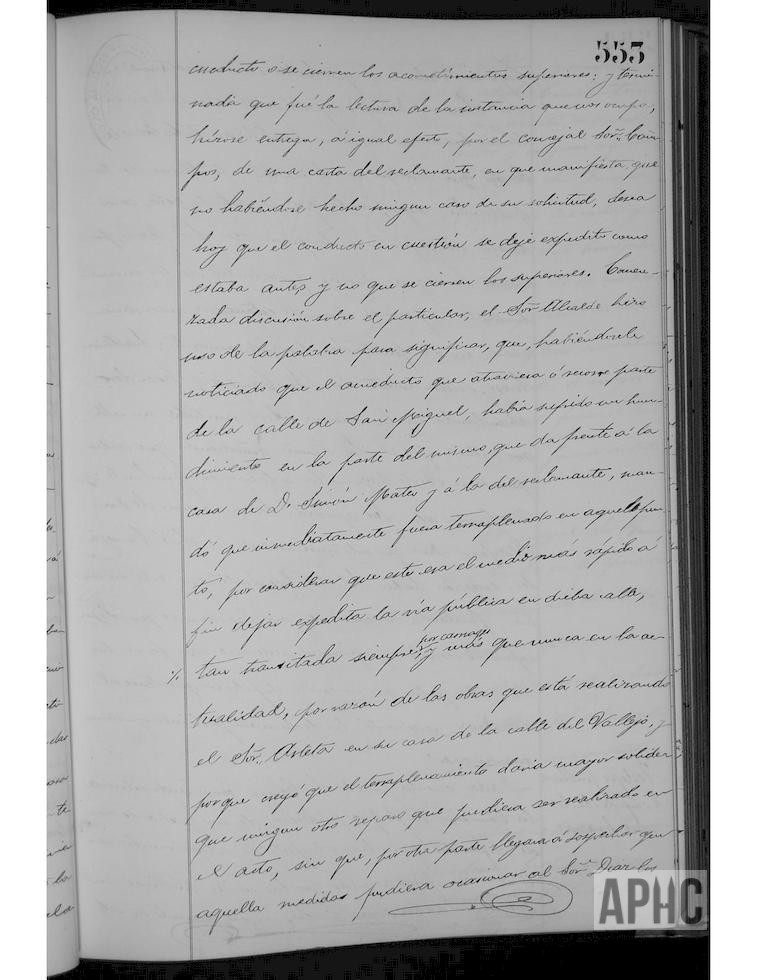 553
cueducto ó se cierren los acometimientos superiores: y termi-
nada que fué la lectura de la instancia que nos ocupa,
hízose entrega, á igual efecto, por el concejal Sor. Cam-
pos, de una carta del reclamante, en que manifiesta que
no habiéndose hecho ningun caso de su solicitud, desea
hoy que el conducto en cuestión se deje expedito como
estaba antes y no que se cierren los superiores. Comen-
zada discusión sobre el particular, el Sor Alcalde hizo
uso de la palabra para significar, que, habiéndosele
noticiado que el acueducto que atraviesa ó recorre parte
de la calle de San Miguel, había sufrido un hun-
dimiento en la parte del mismo, que da frente á la
casa de D. Simón Mateu y á la del reclamante, man-
dó que inmediatamente fuera terraplenado en aquel pun-
to, por considerar que este era el medio más rápido á
fin dejar expedita la vía pública en dicha calle,
por carruages
tan transitada siempre, y más que nunca en la ac-
tualidad, por razón de las obras que está realizando
el Sor. Arleta en su casa de la calle del Vallejo, y
porque creyó que el terraplenamiento daria mayor solidez
que ningun otro reparo que pudiera ser realizado en
el acto, sin que, por otra parte llegara á sospechar que
aquella medida pudiera ocasionar al Sor. Diaz los
APHC